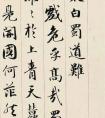 白蜀道難
戲危乎高哉蜀
於上青天蠶
鳧開國何茫然